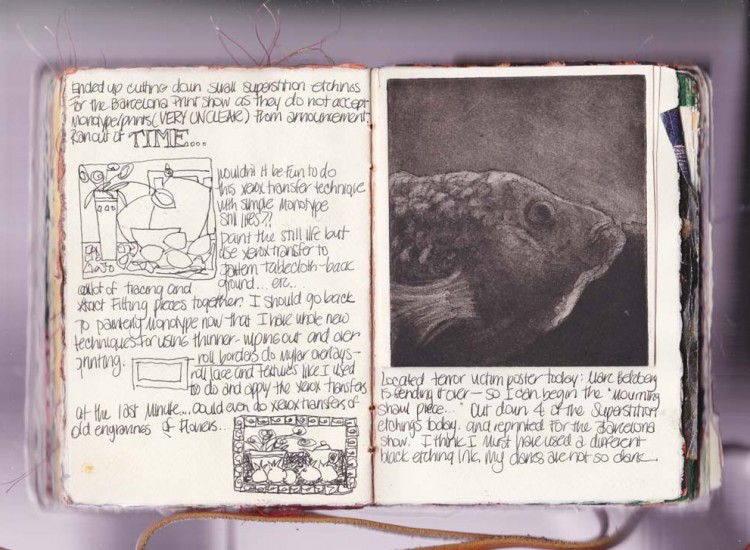 Ended up cutting down small superstition etchings
for the Barcelona Print show as they do not accept
Monotype prints (VERY UNCLEAR) from announcement.
Ran out of TIME...
wouldn't it be fun to do
this xerox transfer technique
with simple Monotype
still lifes??
paint the still life but
use xerox transfer to
pattern tablecloth-back
ground... etc...
a lot of tracing and
exact fitting pieces together. I should go back
to painterly Monotype now that I have whole new
techniques for using thinner-wiping out and over
printing.
roll borders do Mylar overlays-
roll lace and textures like I used
to do and apply the xerox transfers
at the last minute...could even do xerox transfers of
old engravings of flowers...
Located terror victim poster today: Marc
is sending it over - so I can begin the "Mourning
shawl piece..." Cut down 4 of the Superstition
etchings today. and reprinted for the Barcelona
show. I think I must have used a different
black etching ink, my darks are not so dark...